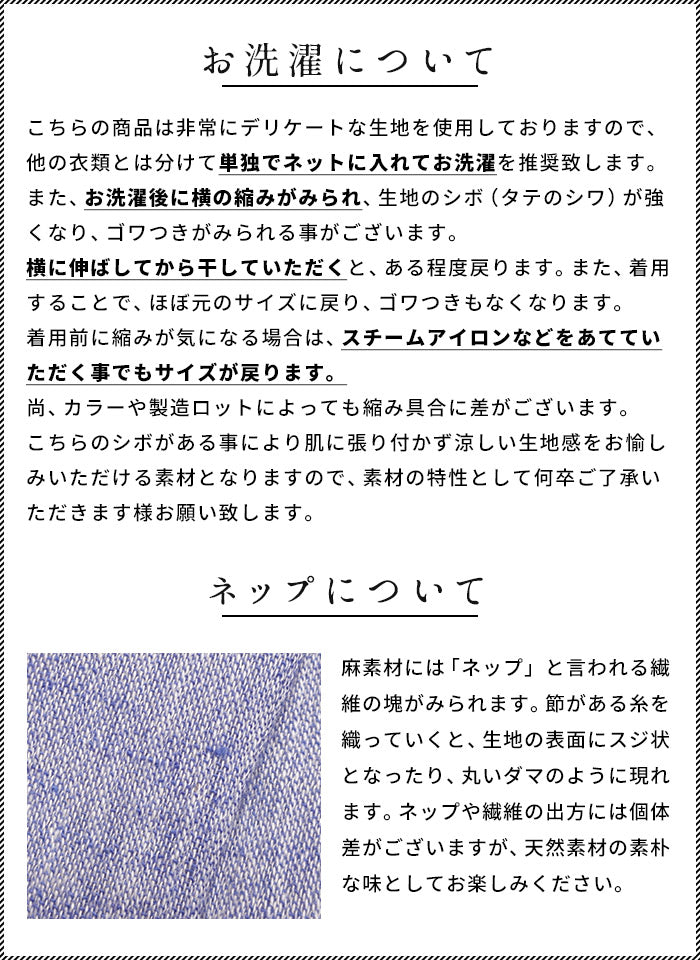 お洗濯について
こちらの商品は非常にデリケートな生地を使用しておりますので、
他の衣類とは分けて単独でネットに入れてお洗濯を推奨致します。
また、お洗濯後に横の縮みがみられ、生地のシボ（タテのシワ）が強
くなり、ゴワつきがみられる事がございます。
横に伸ばしてから干していただくと、ある程度戻ります。また、着用
することで、ほぼ元のサイズに戻り、ゴワつきもなくなります。
着用前に縮みが気になる場合は、スチームアイロンなどをあててい
ただく事でもサイズが戻ります。
尚、カラーや製造ロットによっても縮み具合に差がございます。
こちらのシボがある事により肌に張り付かず涼しい生地感をお愉し
みいただける素材となりますので、素材の特性として何卒ご了承い
ただきます様お願い致します。
ネップについて
麻素材には「ネップ」と言われる繊
維の塊がみられます。節がある糸を
織っていくと、生地の表面にスジ状
となったり、丸いダマのように現れ
ます。ネップや繊維の出方には個体
差がございますが、天然素材の素朴
な味としてお楽しみください。